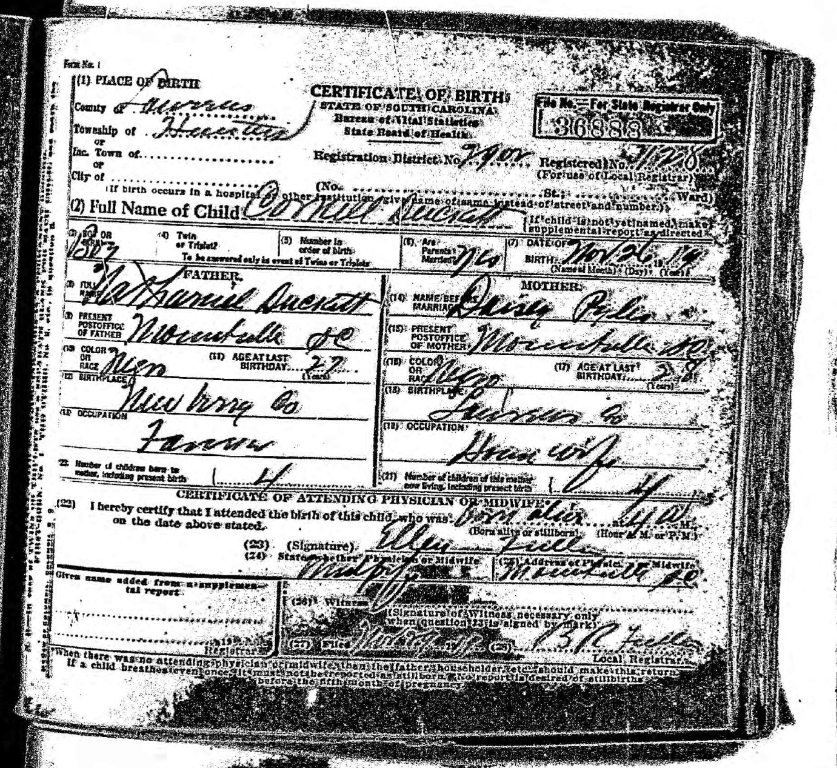 Form No. 1
(1) PLACE OF BIRTH
CERTIFICATE OF BIRTH
STATE OF SOUTH CAROLINA
Bureau of Vital Statistics
State Board of Health
File No.—For State Registrar Only
36888
County of Laurens
Township of Hunter
or
Inc. Town of
or
City of
Registration District No. 2902 Registered No.
(For use of Local Registrar)
(No. St.; Ward)
(If birth occurs in a hospital or other institution, give name of same instead of street and number.)
(2) Full Name of Child Cornell Duckett
If child is not yet named, make supplemental report as directed
(3) BOY OR Boy
(4) Twin or Triplet?
(5) Number in order of birth
To be answered only in event of Twins or Triplets
(6) Are Parents Married? Yes
(7) DATE OF BIRTH Nov 26 19
(Name of Month) (Day) (Year)
FATHER.
(8) FULL NAME Nathaniel Duckett
(9) PRESENT POSTOFFICE OF FATHER Mountville SC
(10) COLOR OR RACE Negro
(11) AGE AT LAST BIRTHDAY 27
(Years)
(12) BIRTHPLACE
Newberry Co
(13) OCCUPATION
Farmer
MOTHER.
(14) NAME BEFORE MARRIAGE Daisey Pyles
(15) PRESENT POSTOFFICE OF MOTHER Mountville SC
(16) COLOR OR RACE Negro
(17) AGE AT LAST BIRTHDAY 28
(Years)
(18) BIRTHPLACE
Laurens Co
(19) OCCUPATION
House wife
Number of children born to mother, including present birth 4
(21) Number of children of this mother now living, including present birth 4
CERTIFICATE OF ATTENDING PHYSICIAN OR MIDWIFE
(22) I hereby certify that I attended the birth of this child, who was born alive 4 M.
on the date above stated. (Born alive or stillborn) (Hour A. M. or P. M.)
(23) (Signature) Ellen Fuller
(24) State whether Physician or Midwife
Midwife
(25) Address of Physician or Midwife
Mountville SC
Given name added from a supplemental report
Registrar
(26) Witness
(Signature of Witness necessary only when question 23 is signed by mark)
(27) Filed Nov 29 19 (28) B R Fuller
Local Registrar
When there was no attending physician or midwife, then the father, householder, etc., should make this return.
If a child breathes even once, it must not be reported as stillborn. No report is desired of stillbirths
before the fifth month of pregnancy.